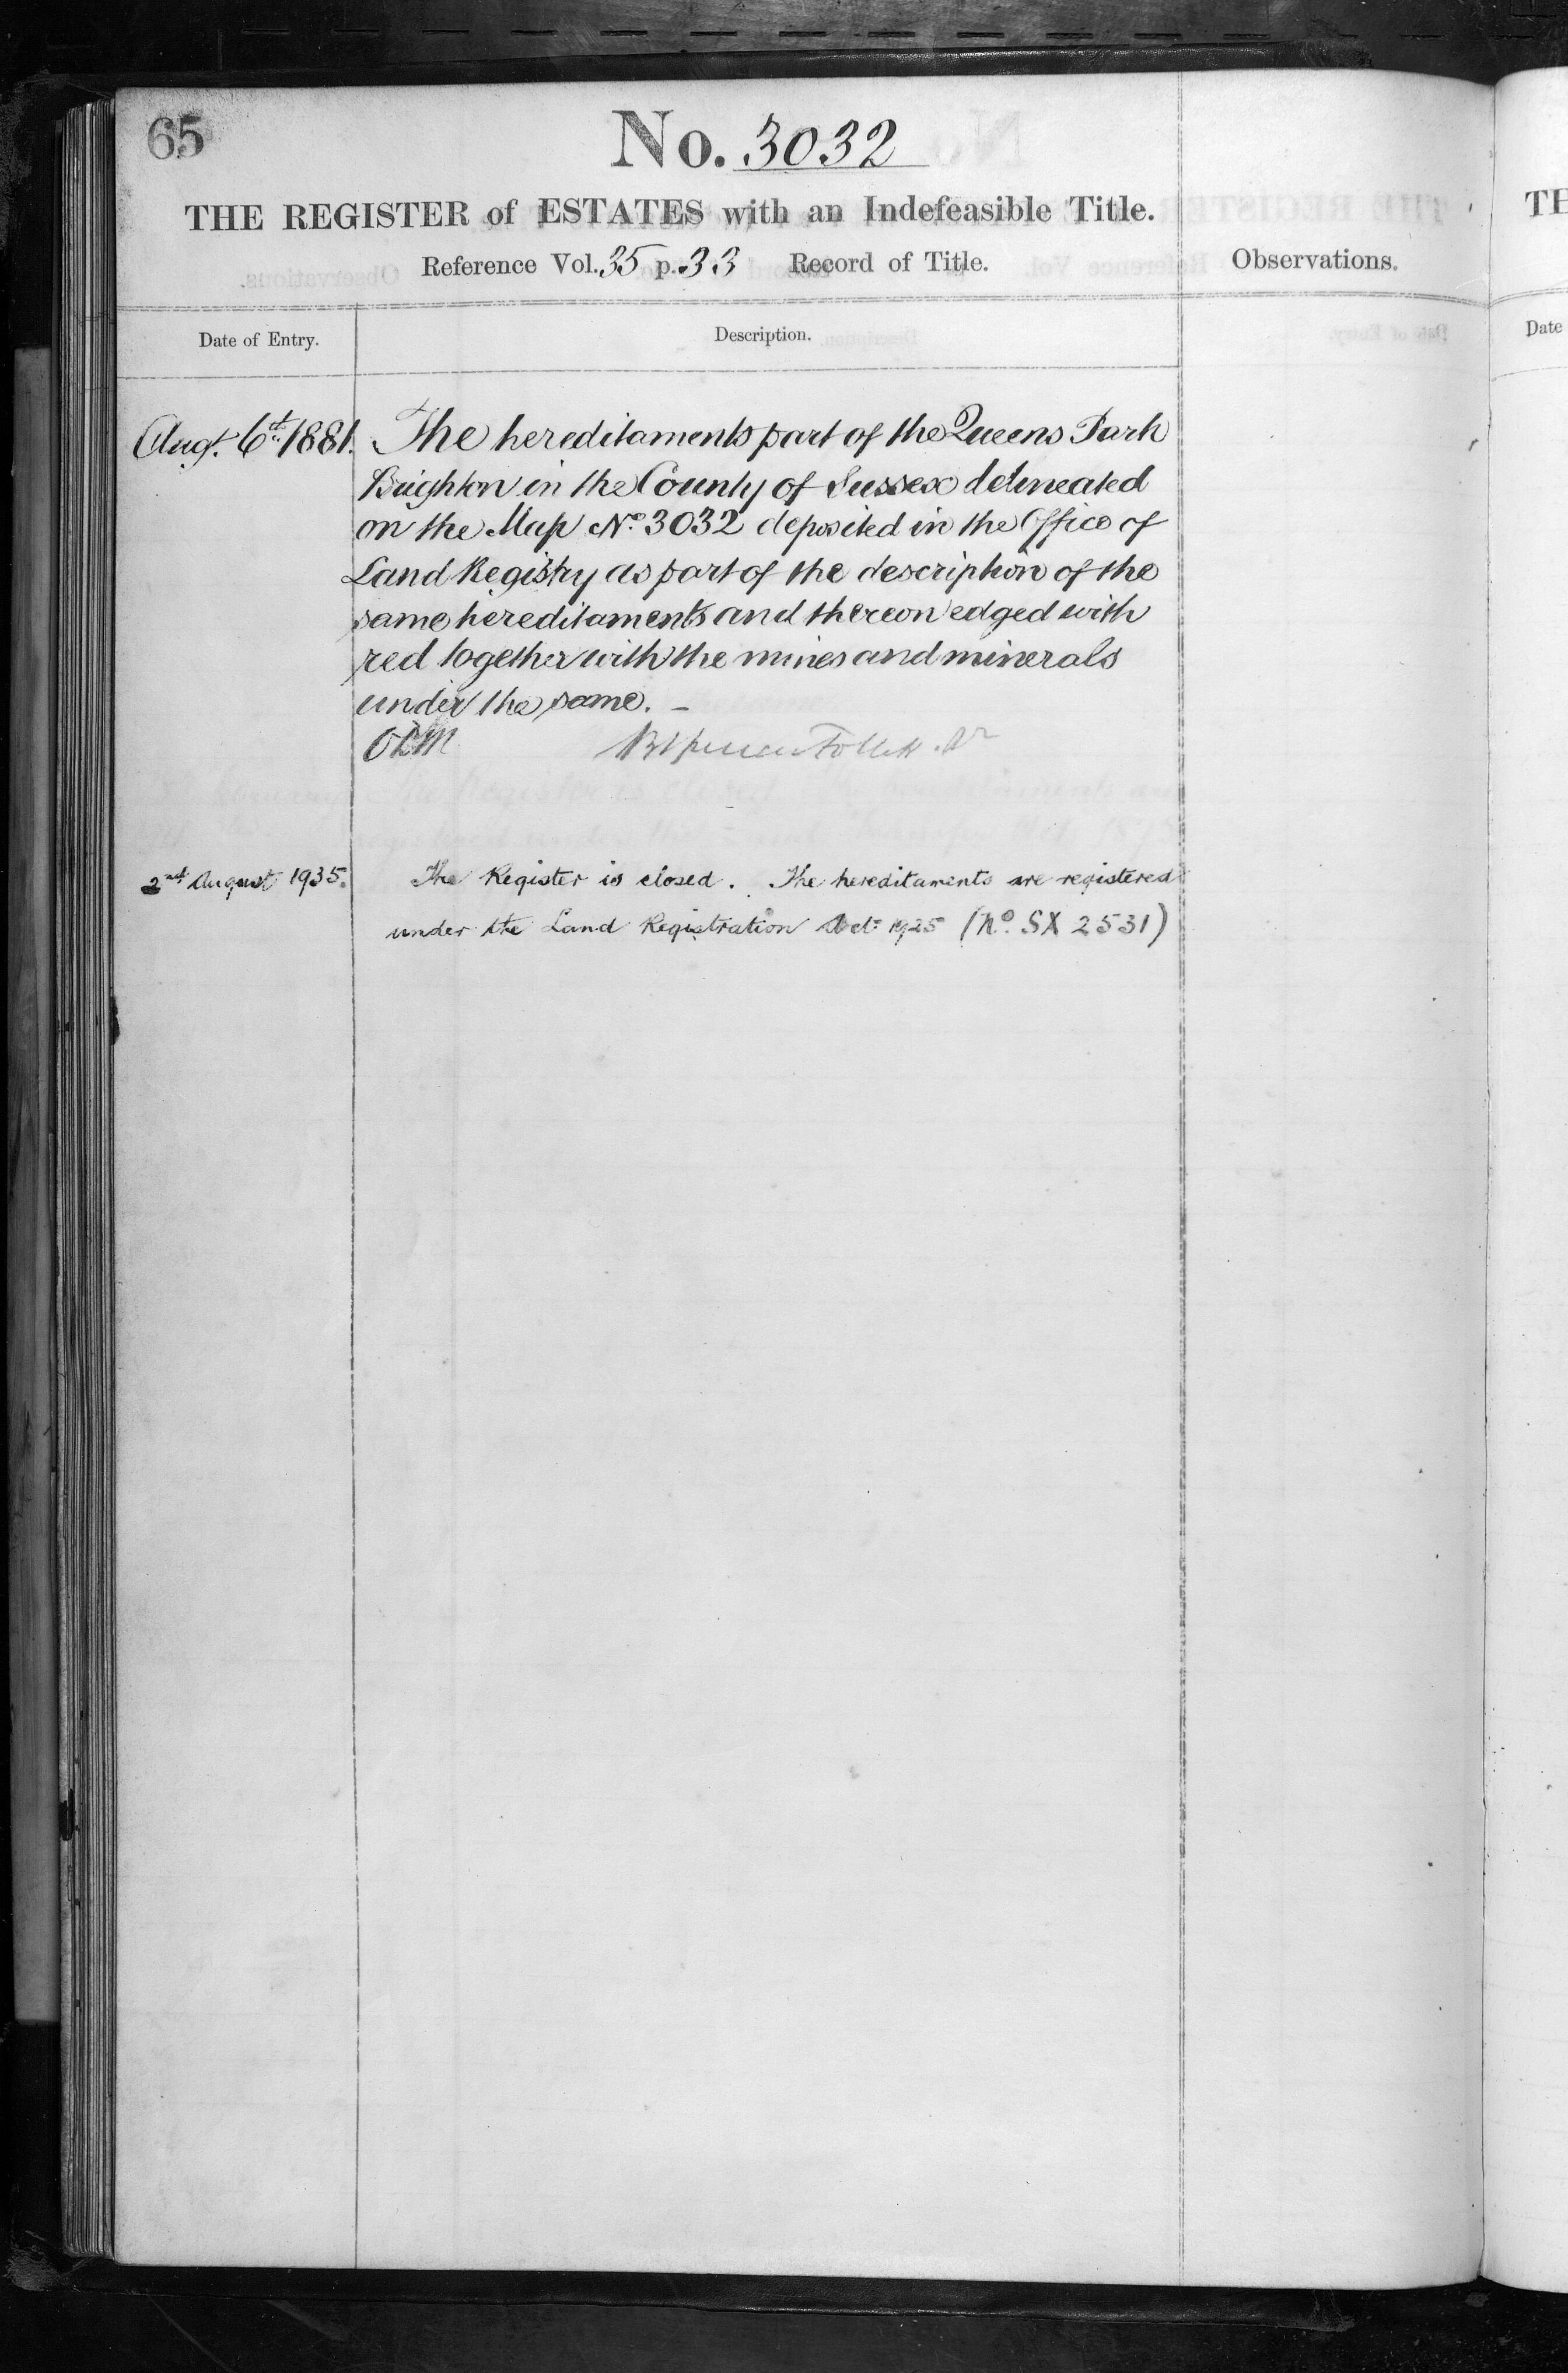 65
No. 3032
THE REGISTER of ESTATES with an Indefeasible Title.
Reference Vol. 35 p. 33 Record of Title.
Observations.
Date of Entry.
Description.
Augt. 6th 1881. The hereditaments part of the Queens Park
Brighton in the County of Sussex delineated
on the Map No. 3032 deposited in the Office of
Land Registry as part of the description of the
same hereditaments and thereon edged with
red together with the mines and minerals
under the same. –
2nd August 1935. The Register is closed. The hereditaments are registered
under the Land Registration Act 1925 (No. SX 2531)
TH
Date